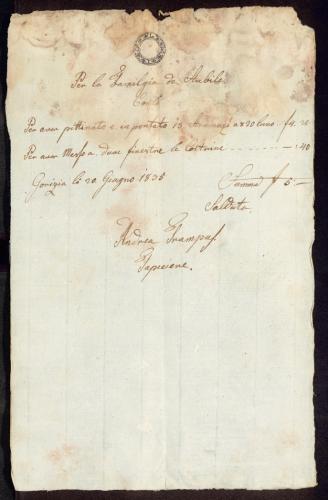 Per la Familgia de Nubili
Conto
Per aver pittinato e in portato 13 a x 20 luno. f 4. 20
Per aver Messo a due finestre le coltrine - - - - - - - - - 40
Gorizia li 20 Giugno 1835 Summa f 5. —
Saldato
Andrea Frampus
Tapeciere.